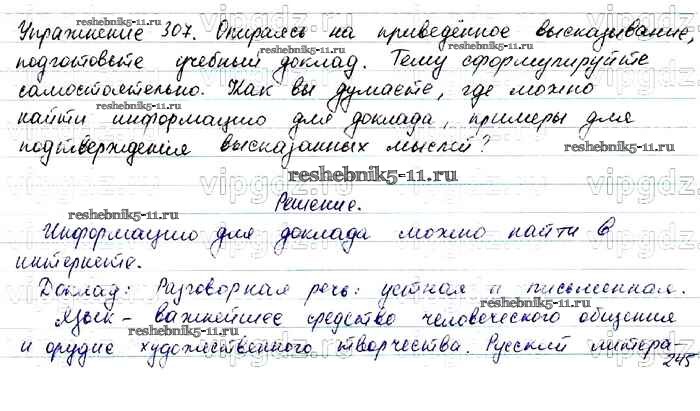 Упражнение 307. Опираясь на приведённое высказывание,
reshebnik5-11.ru
подготовьте учебный доклад. Тему сформулируйте
самостоятельно. Как вы думаете, где можно
reshebnik5-11.ru
найти информацию для доклада, примеры для
подтверждения высказанных мыслей?
vipgdz.ru
reshebnik5-11.ru
Решение.
reshebnik5-11.ru
Информацию для доклада можно найти в
интернете.
vipgdz.ru
Доклад: Разговорная речь: устная и письменная.
Язык – важнейшее средство человеческого общения
reshebnik5-11.ru
и орудие художественного творчества. Русский литера-
245